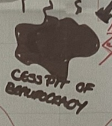 CESSPIT OF
BEAUROCRACY